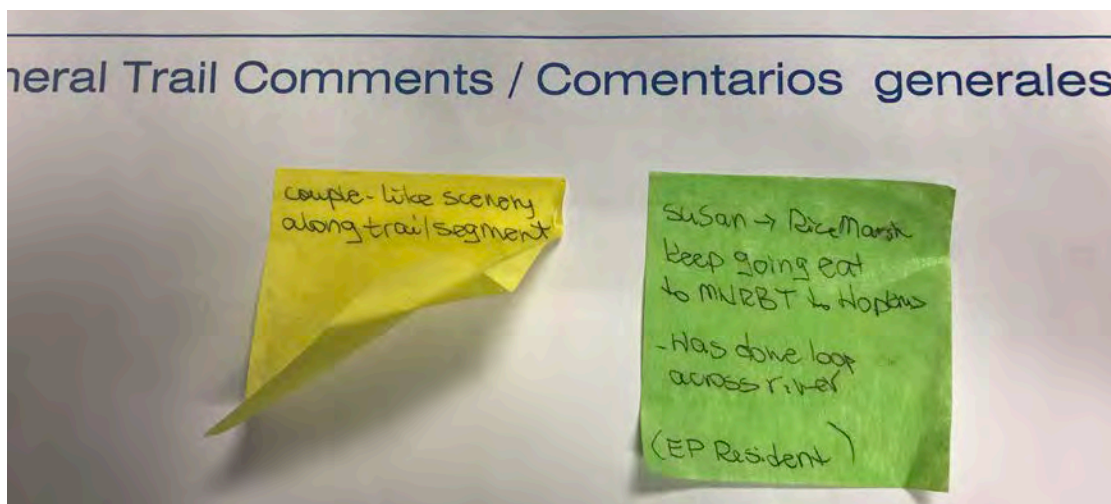 neral Trail Comments / Comentarios generales
couple - like scenery
along trail segment
Susan → Rice Marsh
keep going eat
to MNRBT to Hopkins
- Has done loop
across river
(EP Resident)